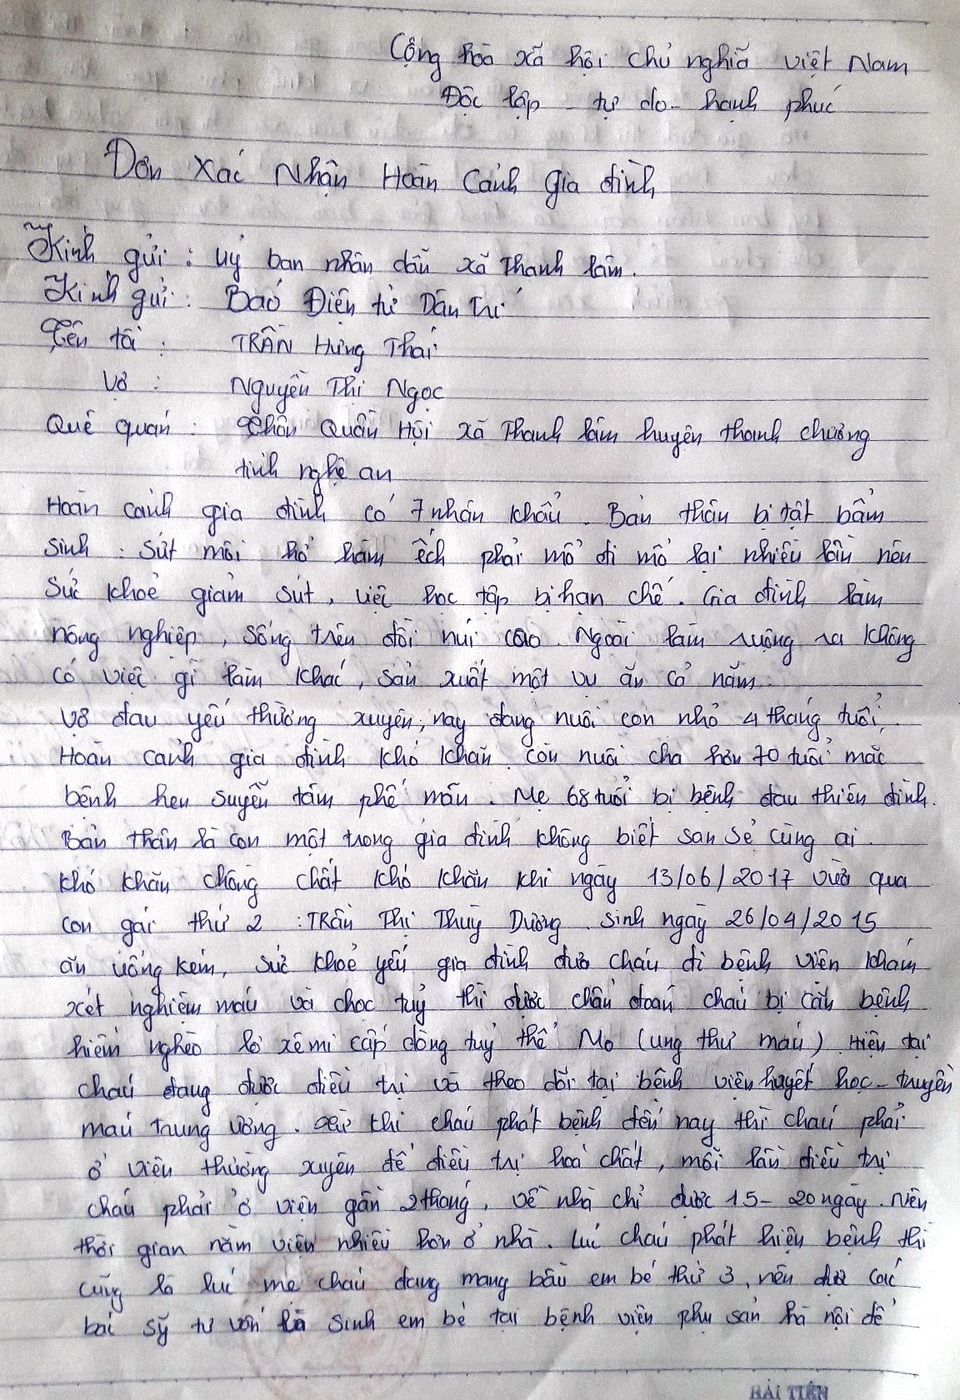 Cộng hòa xã hội chủ nghĩa việt Nam
Độc lập - tự do - hạnh phúc
Đơn Xác Nhận Hoàn Cảnh gia đình
Kính gửi : uỷ ban nhân dân xã Thanh lâm.
Kính gửi : Báo Điện tử Dân Trí
Tên tôi : TRẦN Hưng Thái
Vợ : Nguyễn Thị Ngọc
Quê quán : Thôn Quần Hội xã Thanh lâm huyện thanh chương
tỉnh nghệ an
Hoàn cảnh gia đình có 7 nhân khẩu. Bản thân bị tật bẩm
sinh : sứt môi hở hàm ếch phải mổ đi mổ lại nhiều lần nên
sức khoẻ giảm sút, việc học tập bị hạn chế. Gia đình làm
nông nghiệp, sống trên đồi núi cao. Ngoài làm ruộng ra không
có việc gì làm khác, sản xuất một vụ ăn cả năm.
Vợ đau yếu thường xuyên, nay đang nuôi con nhỏ 4 tháng tuổi,
Hoàn cảnh gia đình khó khăn còn nuôi cha hơn 70 tuổi mắc
bệnh hen suyễn tâm phế mãn. Mẹ 68 tuổi bị bệnh đau thiên đình.
Bản thân là con một trong gia đình không biết san sẻ cùng ai.
khó khăn chồng chất khó khăn khi ngày 13/06/2017 vừa qua
con gái thứ 2 : TRẦN Thị Thuỳ Dương. sinh ngày 26/04/2015
ăn uống kém, sức khoẻ yếu gia đình đưa cháu đi bệnh viện khám
xét nghiệm máu và chọc tuỷ thì được chẩn đoán cháu bị căn bệnh
hiểm nghèo lơ xê mi cấp dòng tuỷ thể Mo (ung thư máu). Hiện tại
cháu đang được điều trị và theo dõi tại bệnh viện huyết học - truyền
máu Trung ương. khi cháu phát bệnh đến nay thì cháu phải
ở viện thường xuyên để điều trị hoá chất, mỗi lần điều trị
cháu phải ở viện gần 2 tháng, về nhà chỉ được 15 - 20 ngày. Nên
thời gian nằm viện nhiều hơn ở nhà. Lúc cháu phát hiện bệnh thì
cũng là lúc mẹ cháu đang mang bầu em bé thứ 3, nên các
bác sỹ tư vấn là sinh em bé tại bệnh viện phụ sản hà nội để
HẢI TIẾN